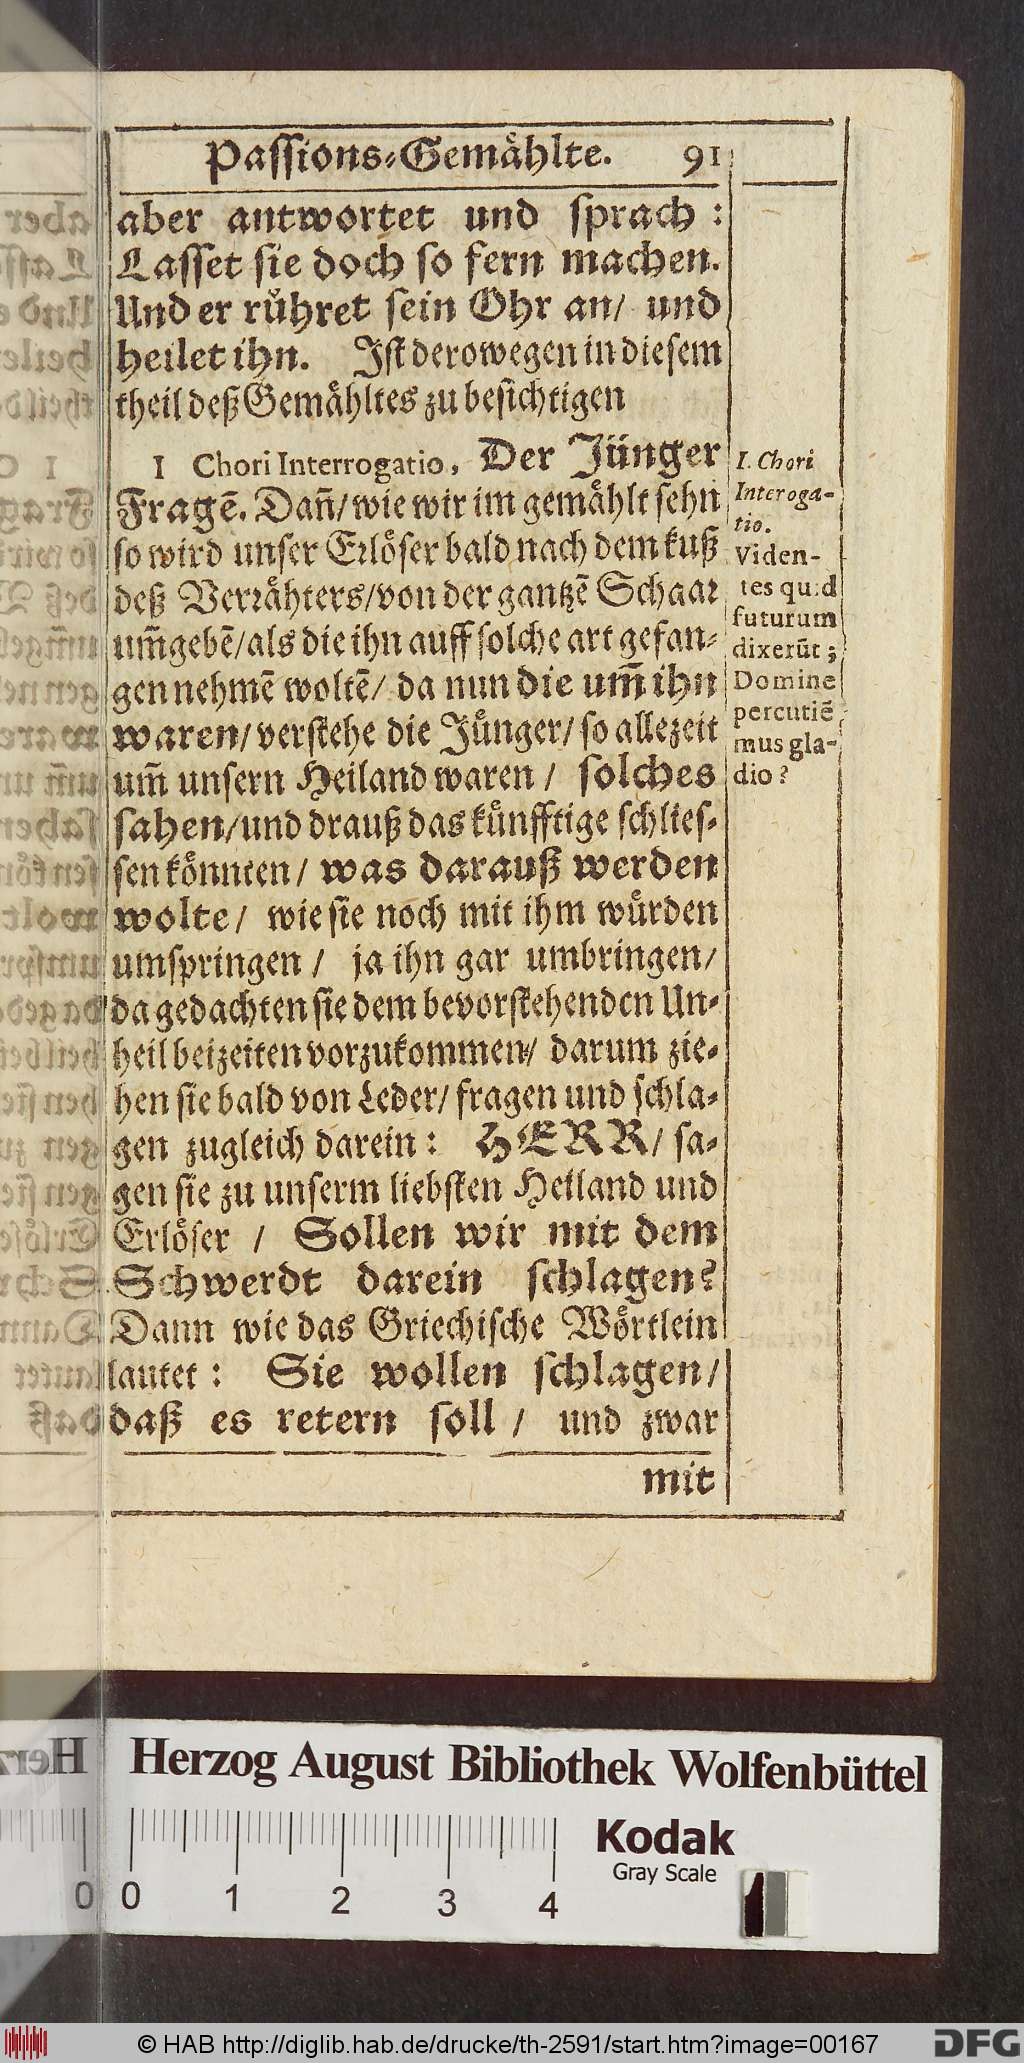 Passions-Gemåhlte. 91
aber antwortet und sprach :
Lasset sie doch so fern machen.
Und er růhret sein Ohr an/ und
heilet ihn. Ist derowegen in diesem
theil deß Gemåhltes zu besichtigen
1 Chori Interrogatio, Der Jünger
Fragē. Dañ/ wie wir im gemåhlt sehn
so wird unser Erlöser bald nach dem kuß
deß Verråhters/ von der gantzē Schaar
um̃gebē/ als die ihn auff solche art gefan-
gen nehmē woltē/ da nun die um̃ ihn
waren/ verstehe die Jůnger/ so allezeit
um̃ unsern Heiland waren / solches
sahen/ und drauß das kůnfftige schlies-
sen könnten/ was darauß werden
wolte/ wie sie noch mit ihm wůrden
umspringen / ja ihn gar umbringen/
da gedachten sie dem bevorstehenden Un-
heil beizeiten vorzukommen/ darum zie-
hen sie bald von Leder/ fragen und schla-
gen zugleich darein : HERR/ sa-
gen sie zu unserm liebsten Heiland und
Erlöser / Sollen wir mit dem
Schwerdt darein schlagen?
Dann wie das Griechische Wörtlein
lautet : Sie wollen schlagen/
daß es retern soll / und zwar
mit
I. Chori
Interoga-
tio.
Viden-
tes quid
futurum
dixerũt ;
Domine
percutiē
mus gla-
dio ?
Herzog August Bibliothek Wolfenbüttel
Kodak
Gray Scale
0 0 1 2 3 4
© HAB http://diglib.hab.de/drucke/th-2591/start.htm?image=00167
DFG